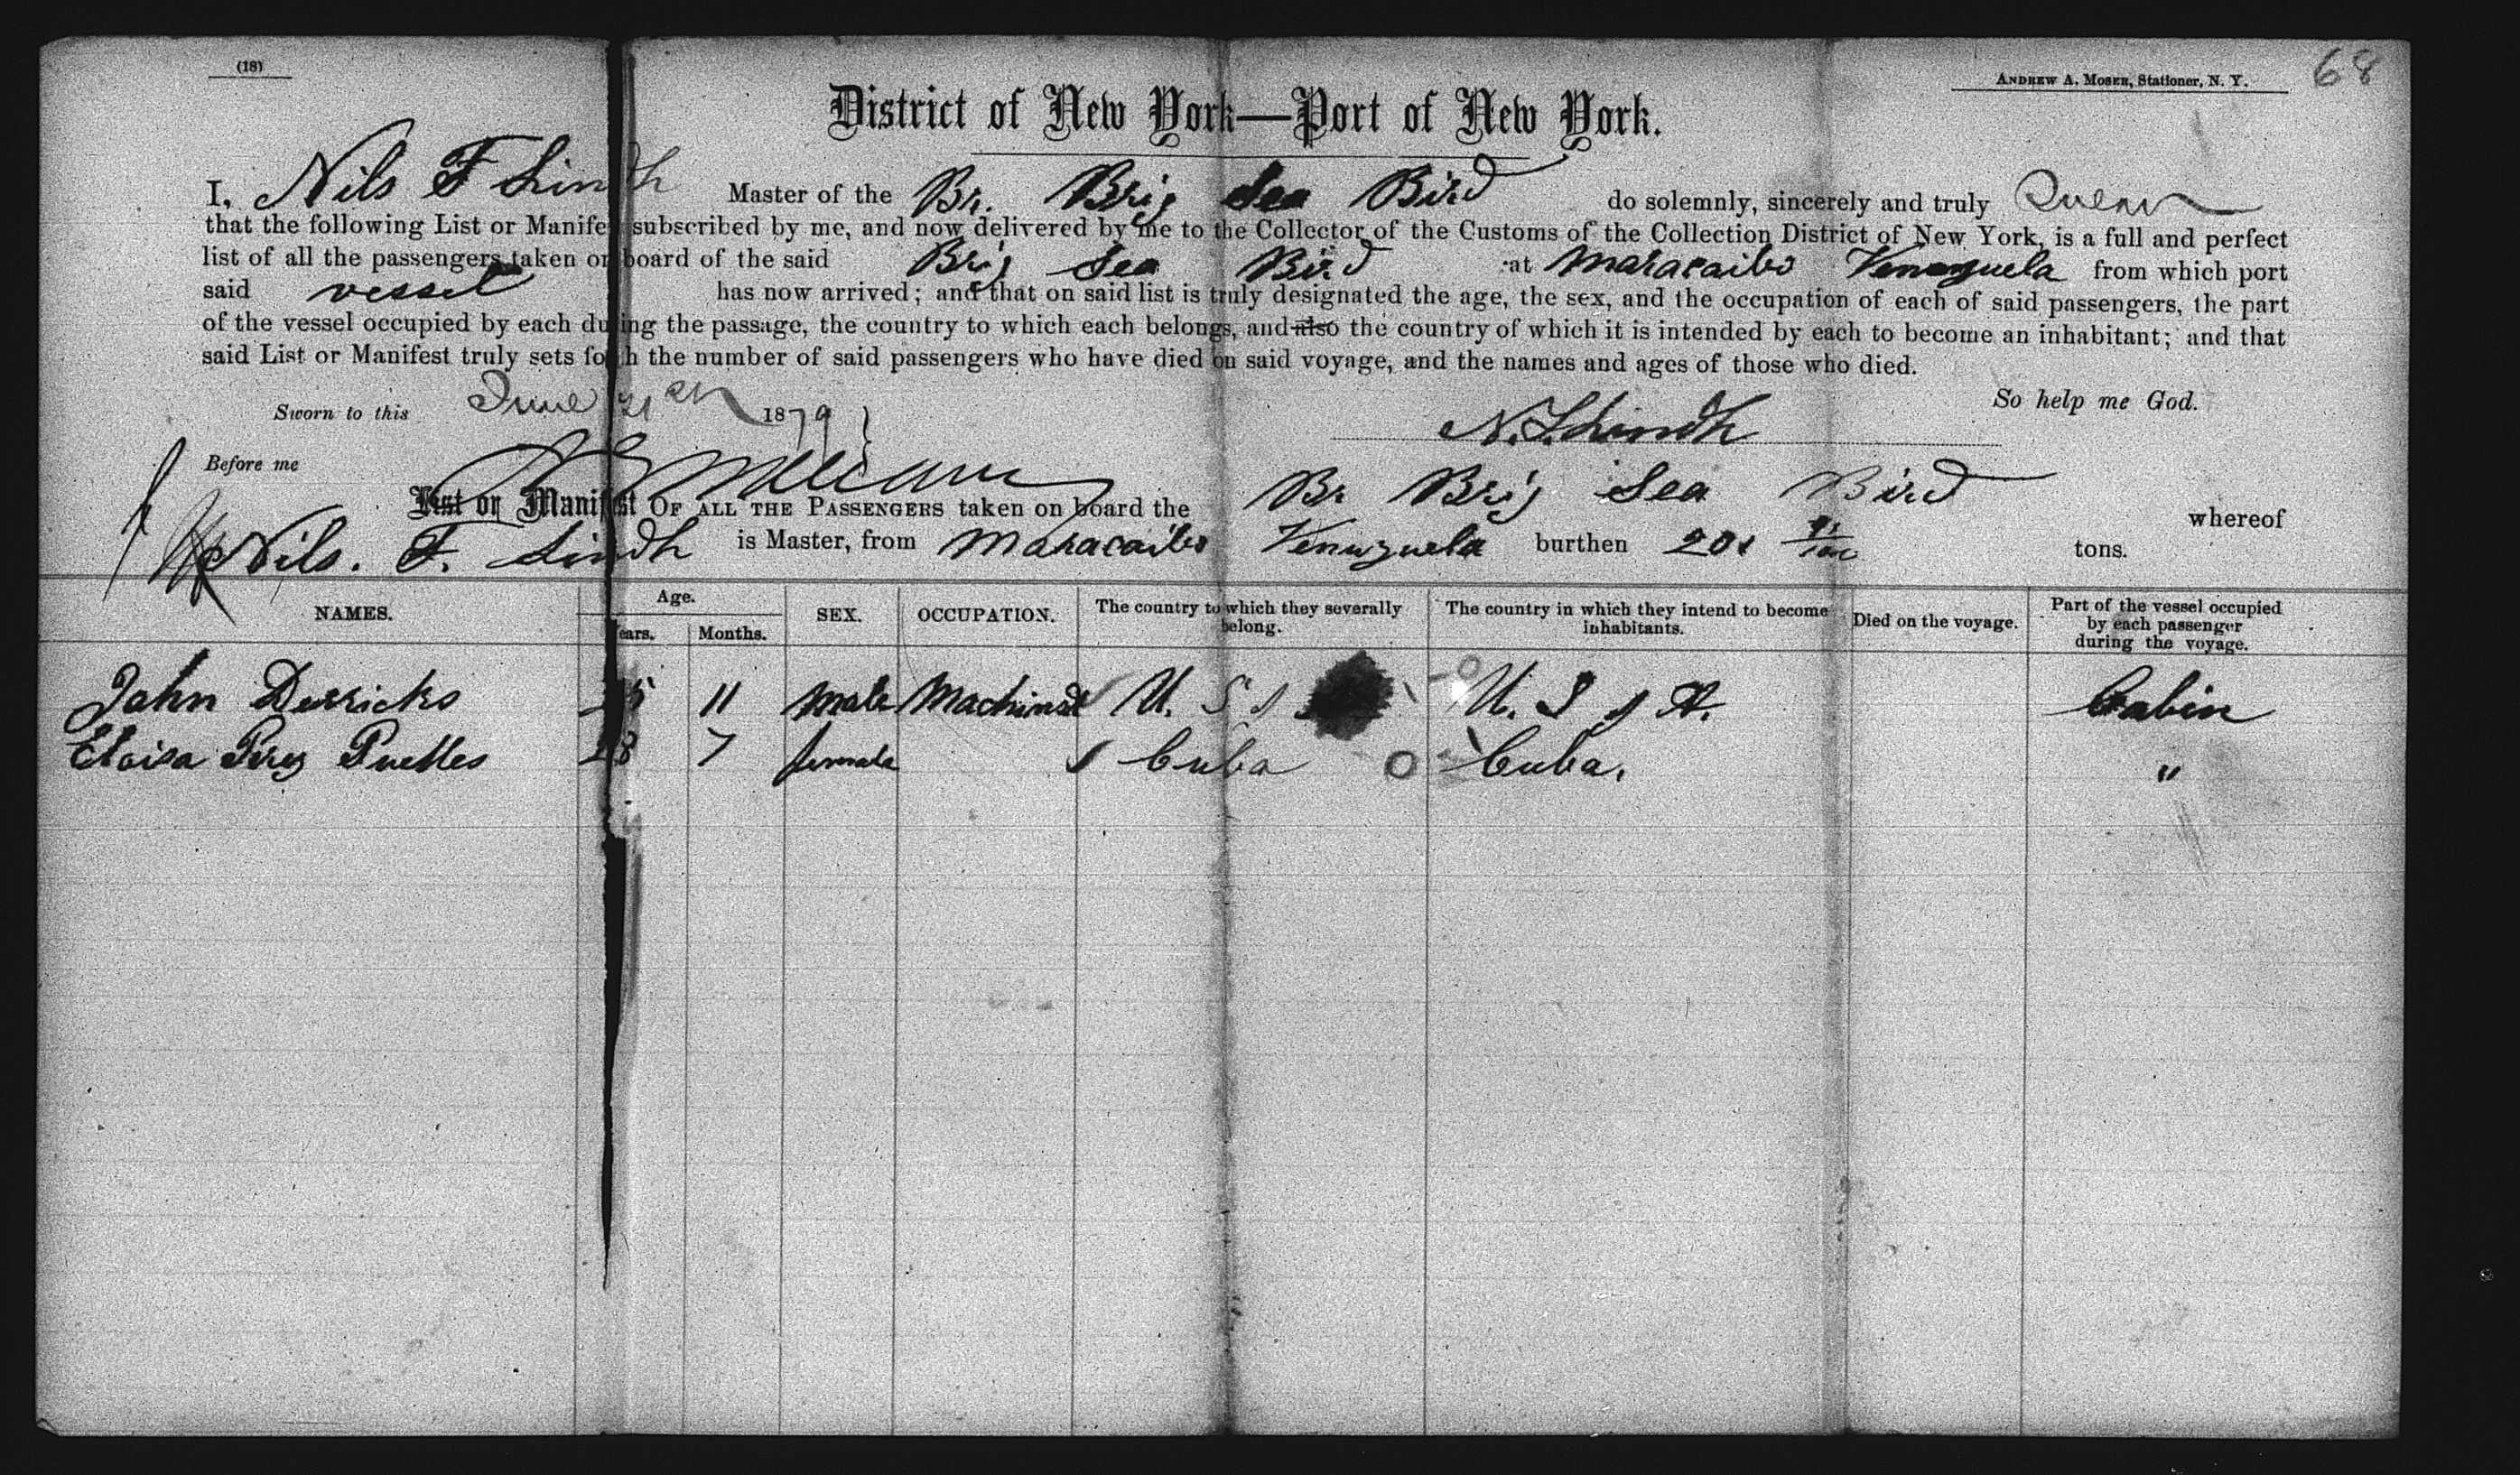 (18)
ANDREW A. MOSER, Stationer, N. Y.
68
District of New York—Port of New York.
I, Nils F Lindh Master of the Br. Brig Sea Bird do solemnly, sincerely and truly Swear
that the following List or Manifest subscribed by me, and now delivered by me to the Collector of the Customs of the Collection District of New York, is a full and perfect
list of all the passengers taken on board of the said Brig Sea Bird at Maracaibo Venezuela from which port
said vessel has now arrived; and that on said list is truly designated the age, the sex, and the occupation of each of said passengers, the part
of the vessel occupied by each during the passage, the country to which each belongs, and also the country of which it is intended by each to become an inhabitant; and that
said List or Manifest truly sets forth the number of said passengers who have died on said voyage, and the names and ages of those who died.
So help me God.
Sworn to this June 1879
N. F. Lindh
Before me
List or Manifest OF ALL THE PASSENGERS taken on board the Br Brig Sea Bird whereof
Nils. F. Lindh is Master, from Maracaibo Venezuela burthen 201 tons.
NAMES. Age. Years. Months. SEX. OCCUPATION. The country to which they severally belong. The country in which they intend to become inhabitants. Died on the voyage. Part of the vessel occupied by each passenger during the voyage.
John Derricks 25 11 male Machinist U. S of U. S of A. Cabin
Eloisa Perez Puelles 28 7 female Cuba Cuba. "